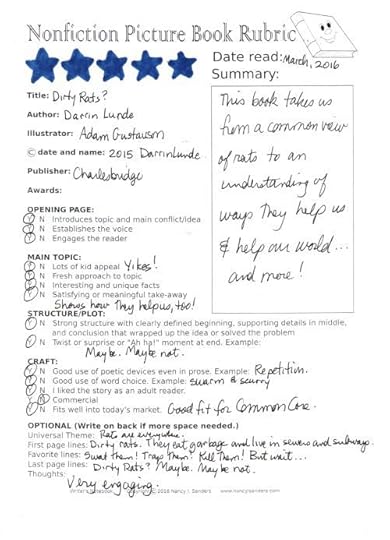 Nonfiction Picture Book Rubric
Date read: March, 2016
Summary:
Title: Dirty Rats?
Author: Darrin Lunde
Illustrator: Adam Gustavson
© date and name: 2015 Darrin Lunde
Publisher: Charlesbridge
Awards:
This book takes us
from a common view
of rats to an
understanding of
ways they help us
& help our world...
and more!
OPENING PAGE:
Y N Introduces topic and main conflict/idea
Y N Establishes the voice
Y N Engages the reader
MAIN TOPIC:
Y N Lots of kid appeal Yikes!
Y N Fresh approach to topic
Y N Interesting and unique facts
Y N Satisfying or meaningful take-away
Shows how they help us, too!
STRUCTURE/PLOT:
Y N Strong structure with clearly defined beginning, supporting details in middle,
and conclusion that wrapped up the idea or solved the problem
Y N Twist or surprise or "Ah ha!" moment at end. Example:
Maybe. Maybe not.
CRAFT:
Y N Good use of poetic devices even in prose. Example: Repetition.
Y N Good use of word choice. Example: swarm & scurry
Y N I liked the story as an adult reader.
Y N Commercial
Y N Fits well into today's market. Good fit for Common Core.
OPTIONAL (Write on back if more space needed.)
Universal Theme: Rats are everywhere.
First page lines: Dirty rats. They eat garbage and live in sewers and subways.
Favorite lines: Swat them! Trap them! Kill Them! But wait...
Last page lines: Dirty Rats? Maybe. Maybe not.
Thoughts:
Very engaging.
Writer's Notebook Copyright © 2016 Nancy I. Sanders www.nancyisanders.com